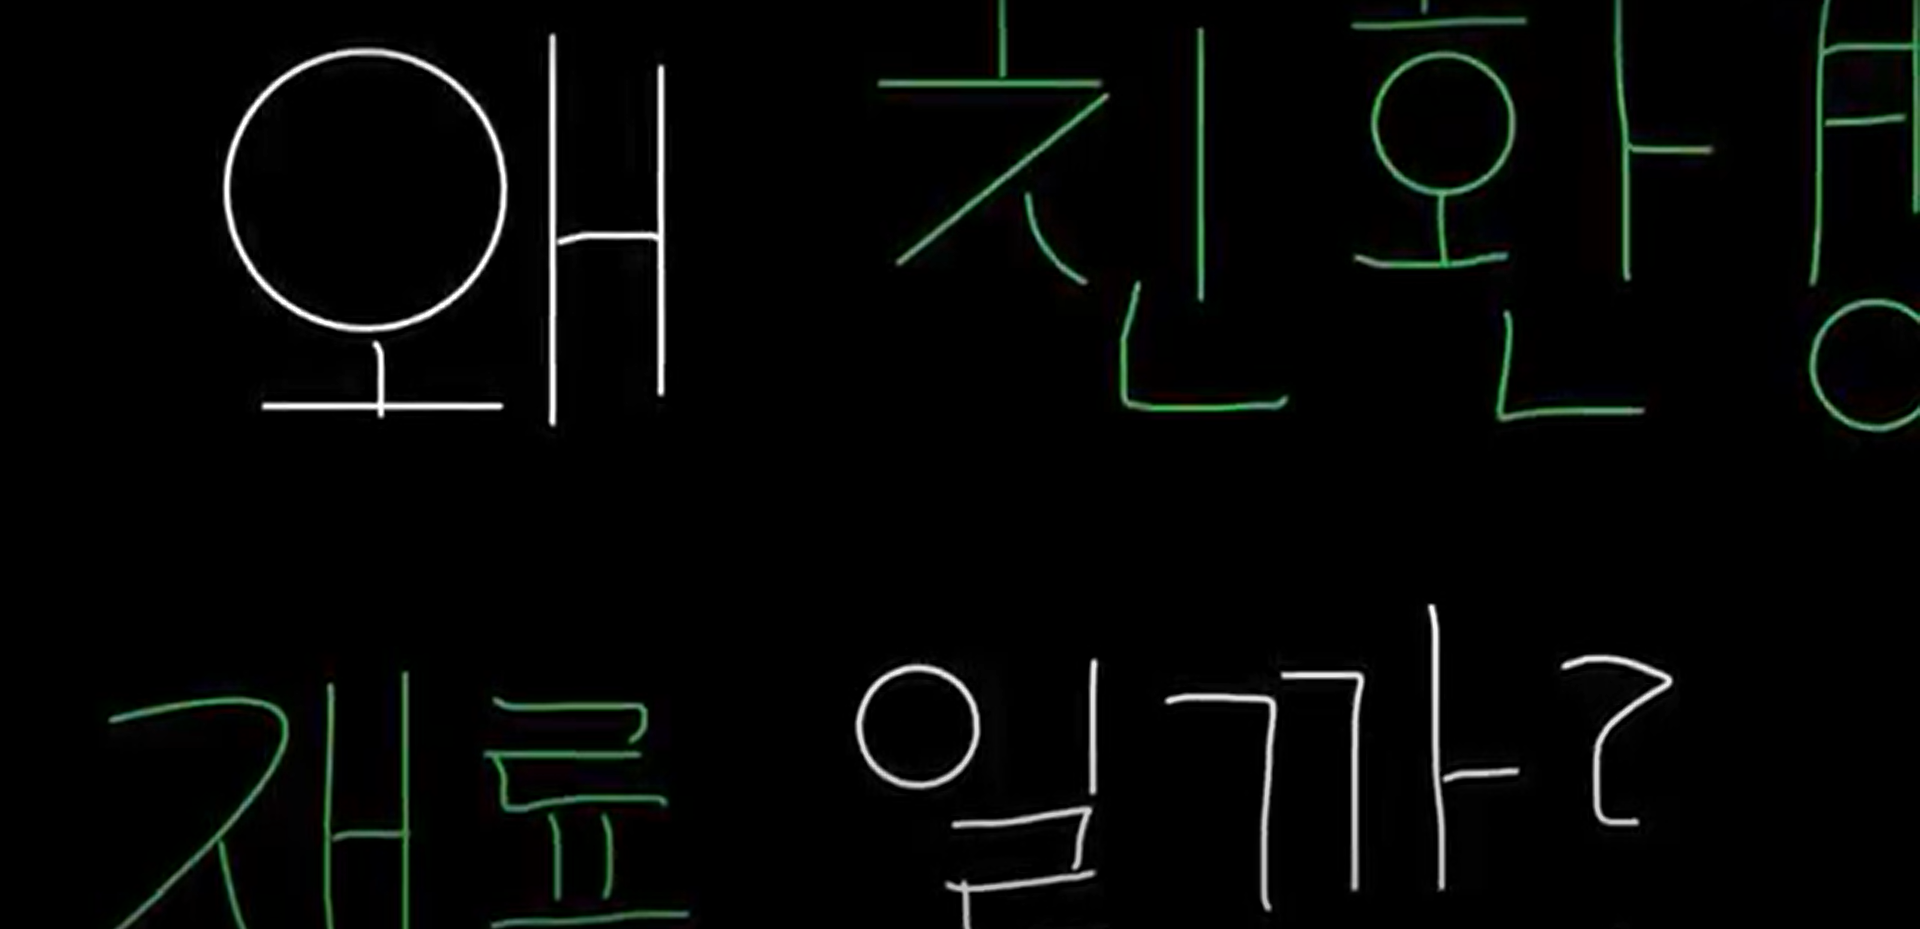 왜 친환경
재료 일까?